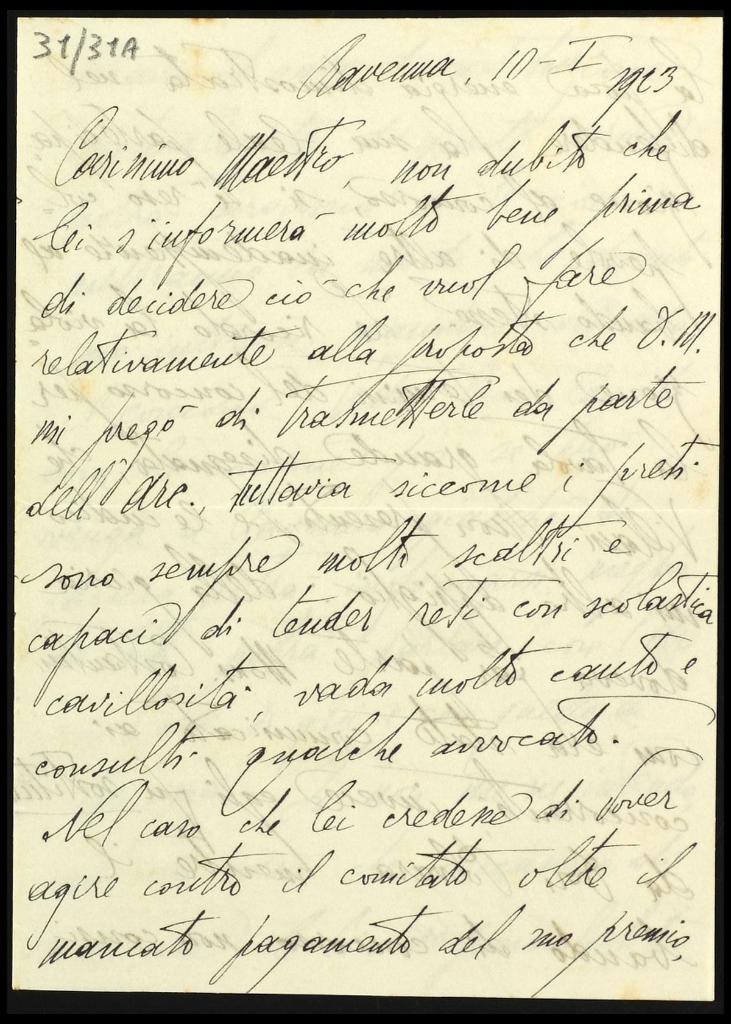 31/31A
Ravenna, 10-I 1923
Carissimo Maestro, non dubito che
lei s'informerà molto bene prima
di decidere ciò che vuol fare
relativamente alla proposta che D. M.
mi pregò di trasmetterle da parte
dell'Arc., tuttavia siccome i preti
sono sempre molto scaltri e
capaci di tender reti con scolastica
cavillosità, vada molto cauto e
consulti qualche avvocato.
Nel caso che lei credesse di dover
agire contro il comitato oltre il
mancato pagamento del suo premio,